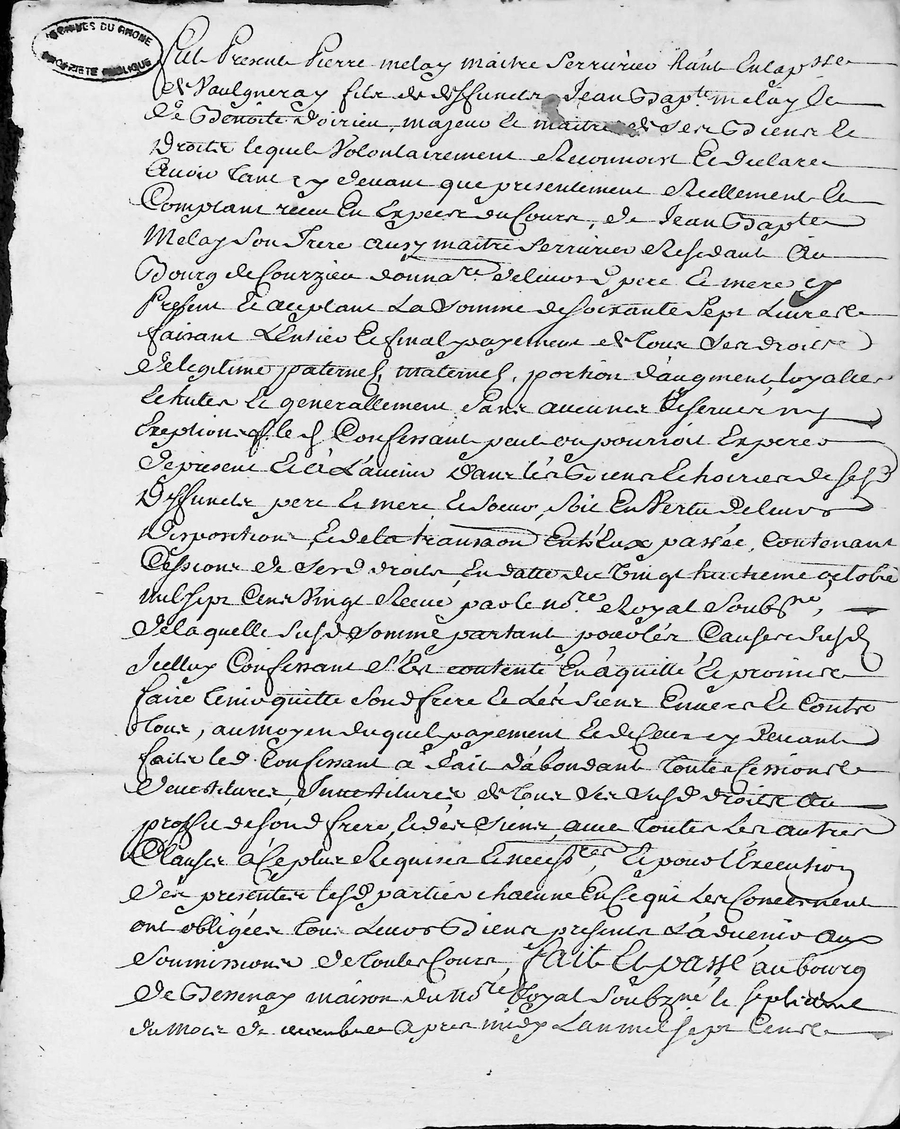 ARCHIVES DU RHONE
PROPRIETE PUBLIQUE
fut Present Pierre melay maitre Serrurier hãnt En la psse
de Vaulgneray fils de deffuncts Jean Bapte. melay Et
de Benoite Poirieu, majeur Et maitre de Ses Biens Et
Droits lequel Volontairement a Reconnoist Et declare
Avoir tant cy devant que presentement Reellement Et
Comptant receu En Espece du Cours, de Jean Bapte
Melay Son frere aussy maitre Serrurier Residant Au
Bourg de Courzieu donnare. de leurs d pere Et mere cy
Present Et acceptant La Somme de Soixante Sept Livres Et
faisant L'Entier Et final payement de tous Ses droits
de legitime paternel, maternel, portion d'augment, loyalles
Echutes Et generallement Sans aucunes Reserves ny
Exeptions q. led Confessant peut ou pourroit Esperer
de present Et à L'avenir dans les Biens Et hoiries de sesd
Deffuncts pere Et mere, Et Soeur, Soit En Vertu de leurs
Dispositions, Et de la transaon Entr'Eux passée, Contenant
Cessions de Sesd droits, En datte du Vingt huitieme octobre
mil Sept Cens Vingt Receue par le nore. Royal Soubsne,
de laquelle Susd Somme partant pour les Causes Susd
Icelluy Confessant S'Est contenté En a quitté Et promis
faire tenir quitte Sond frere Et Les Siens Envers Et Contre
Tous, au moyen duquel payement Et de Ceux cy Devant
faits led. Confessant à fait d'abondant toutes Cessions
Devestitures, Investitures de tous Ses Susd droits au
proffit de Sond frere, Et des Siens, avec toutes Les autres
Clauses à Ce plus Requises Et necessres, Et pour l'Execution
des presentes lesd parties chacune En Ce qui Les Concernent
ont obligées tous Leurs Biens presents Et à venir aux
Soumissions de toutes Cours, fait Et passé au bourg
de Bessenay maison du Nore Royal Soubzné le Septieme
du mois de decembre apres midy L'an mil Sept Cens